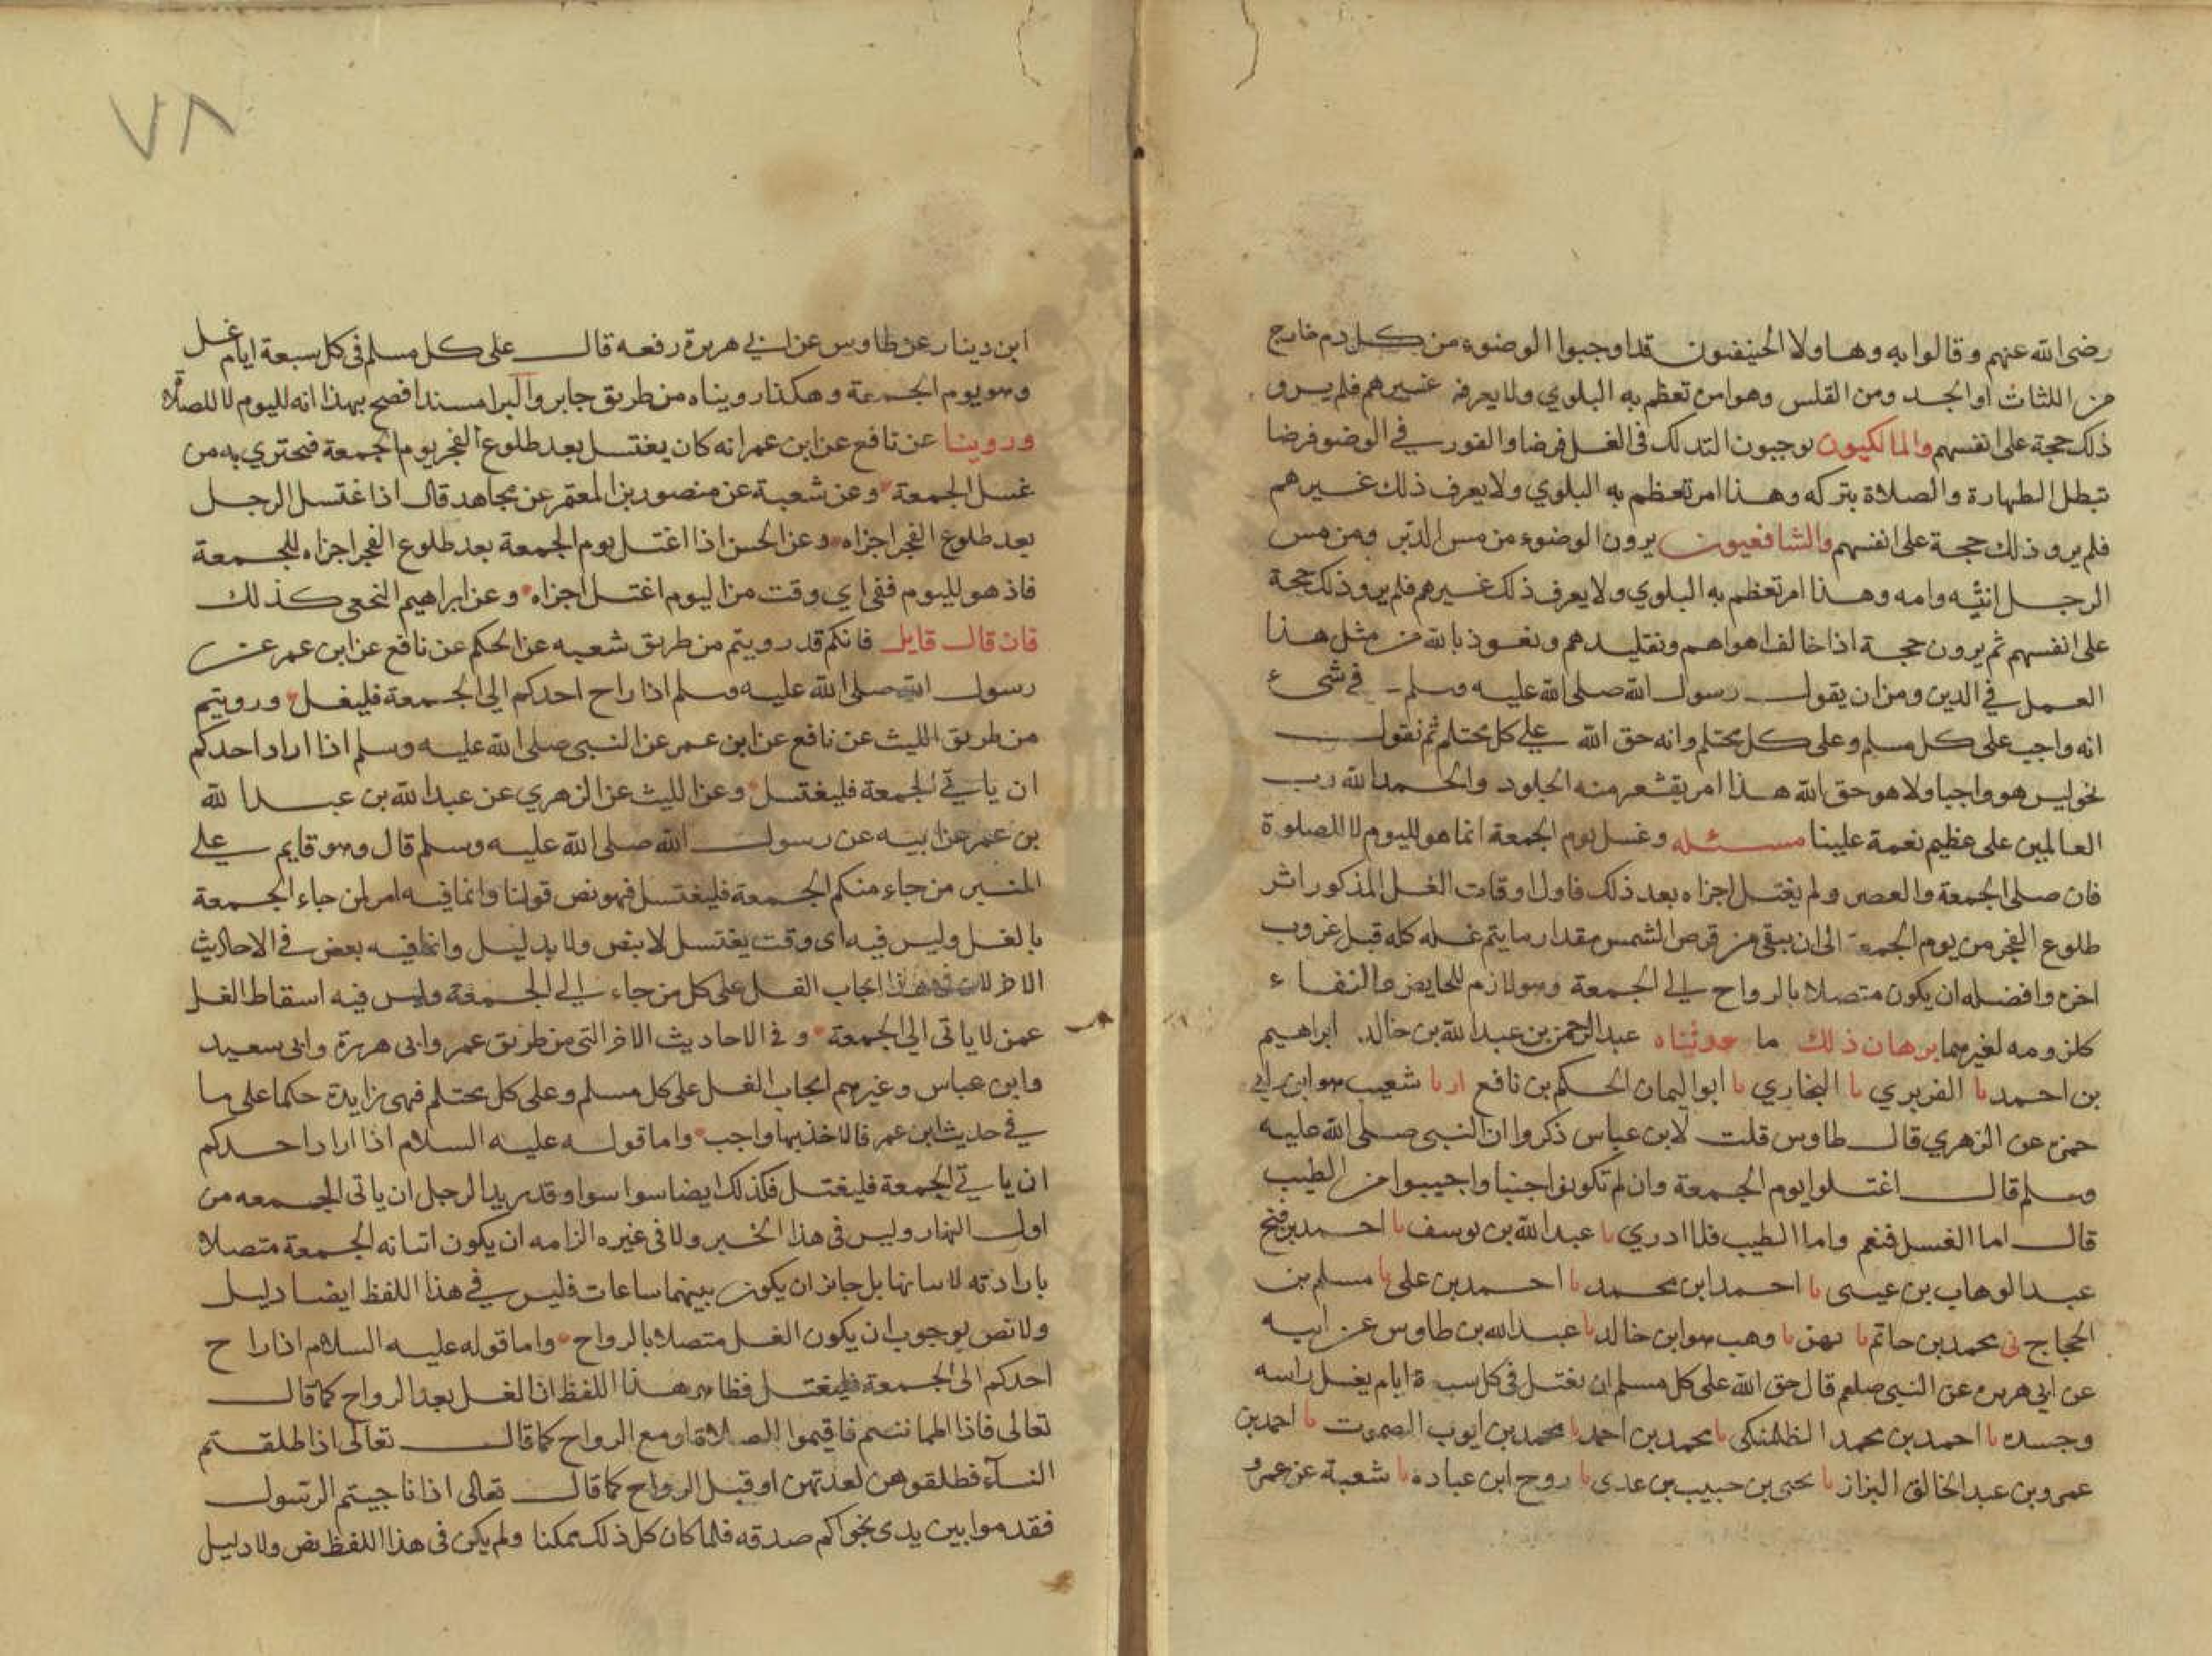 رضى الله عنهم وقالوا به وهاولا الحنيفيون قد اوجبوا الوضوء من كل دم خارج
من اللثاث او الجسد ومن القلس وهو امن تعظم به البلوي ولا يعرفه غيرهم فلم يرو
ذلك حجة على انفسهم والمالكيون يوجبون التدلك فى الغسل فرضا والفور في الوضو فرضا
تبطل الطهارة والصلاة بتركه وهذا امر تعظم به البلوي ولا يعرف ذلك غيرهم
فلم يرو ذلك حجة على انفسهم والشافعيون يرون الوضوء من مس الدبر ومن مس
الرجل انثيه وامه وهذا امر تعظم به البلوي ولا يعرف ذلك غيرهم فلم يرو ذلك حجة
على انفسهم ثم يرون حجة اذا خالف اهواهم وتقليدهم ونعوذ بالله من مثل هذا
العمل في الدين ومن ان يقول رسول الله صلى الله عليه وسلم في شىء
انه واجب على كل مسلم وعلى كل محتلم وانه حق الله على كل محتلم ثم نقول
نحو ليس هو واجبا ولا هو حق الله هذا امر يقشعر منه الجلود والحمد لله رب
العالمين على عظيم نعمة علينا مسئله وغسل يوم الجمعة انما هو لليوم لا للصلوة
فان صلى الجمعة والعصر ولم يغتسل اجزاه بعد ذلك فاول اوقات الغسل المذكور اثر
طلوع الفجر من يوم الجمعة الى ان يبقى من قرص الشمس مقدار ما يتم غسله كله قبل غروب
اخره وافضله ان يكون متصلا بالرواح الى الجمعة وهو لازم للحايض والنفساء
كلزومه لغيرهما برهان ذلك ما حدثناه عبد الرحمن بن عبد الله بن خالد ابراهيم
بن احمد نا الفربري نا البخاري نا ابو اليمان الحكم بن نافع ارنا شعيب هو ابن ابي
حمزة عن الزهري قال طاوس قلت لابن عباس ذكروا ان النبى صلى الله عليه
وسلم قال اغتسلوا يوم الجمعة وان لم تكونوا جنبا واجيبوا من الطيب
قال اما الغسل فنعم واما الطيب فلا ادري نا عبد الله بن يوسف نا احمد بن فتح
عبد الوهاب بن عيسى نا احمد ابن محمد نا احمد بن على نا مسلم بن
الحجاج نى محمد بن حاتم نا بهز نا وهب هو ابن خالد نا عبد الله بن طاوس عن ابيه
عن ابي هريره عن النبى صلعم قال حق الله على كل مسلم ان يغتسل فى كل سبعة ايام يغسل راسه
وجسده نا احمد بن محمد الطلمنكى نا محمد بن احمد نا محمد بن ايوب الصموت نا احمد بن
عمرو بن عبد الخالق البزاز نا يحيى بن حبيب بن عدى نا روح ابن عباده نا شعبة عن عمرو
٧٨
ابن دينار عن طاوس عن ابي هريرة رفعه قال على كل مسلم فى كل سبعة ايام غسل
وهو يوم الجمعة وهكذا رويناه من طريق جابر والبرا مسندا فصح بهذا انه لليوم لا للصلاة
وروينا عن نافع عن ابن عمر انه كان يغتسل بعد طلوع الفجر يوم الجمعة فيجتزي به من
غسل الجمعة وعن شعبة عن منصور بن المعتمر عن مجاهد قال اذا غتسل الرجل
بعد طلوع الفجر اجزاه وعن الحسن اذا اغتسل يوم الجمعة بعد طلوع الفجر اجزاه للجمعة
فاذ هو لليوم ففى اي وقت من اليوم اغتسل اجزاه وعن ابراهيم النخعى كذلك
فان قال قايل فانكم قد رويتم من طريق شعبه عن الحكم عن نافع عن ابن عمر عن
رسول الله صلى الله عليه وسلم اذا راح احدكم الي الجمعة فليغسل ورويتم
من طريق الليث عن نافع عن ابن عمر عن النبى صلى الله عليه وسلم اذا اراد احدكم
ان ياتي الجمعة فليغتسل وعن الليث عن الزهري عن عبد الله بن عبد الله
بن عمر عن ابيه عن رسول الله صلى الله عليه وسلم قال وهو قايم على
المنبر من جاء منكم الجمعة فليغتسل فهو نص قولنا وانما فيه امر لمن جاء الجمعة
بالغسل وليس فيه اى وقت يغتسل لا بنص ولا بدليل وانما فيه بعض في الاحاديث
الاخر لان فى هذا ايجاب الغسل على كل من جاء الى الجمعة وليس فيه اسقاط الغسل
عمن لا ياتى الي الجمعة وفي الاحاديث الاخر التى من طريق عمر وابى هريرة وابى سعيد
وابن عباس وغيرهم ايجاب الغسل على كل مسلم وعلى كل محتلم فهى زايدة حكما على ما
في حديث ابن عمر فالاخذ بها واجب واما قوله عليه السلام اذا اراد احدكم
ان ياتي الجمعة فليغتسل فكذلك ايضا سوا سوا وقد يريد الرجل ان ياتى الجمعه من
اول النهار وليس فى هذا الخبر ولا فى غيره الزامه ان يكون اتيانه الجمعة متصلا
بارادته لاتيانها بل جايز ان يكون بينهما ساعات فليس في هذا اللفظ ايضا دليل
ولا نص بوجوب ان يكون الغسل متصلا بالرواح واما قوله عليه السلام اذا راح
احدكم الى الجمعة فليغتسل فظاهر هذا اللفظ ان الغسل بعد الرواح كما قال
تعالى فاذا اطماننتم فاقيموا الصلاة او مع الرواح كما قال تعالى اذا طلقتم
النسآء فطلقوهن لعدتهن او قبل الرواح كما قال تعالى اذا ناجيتم الرسول
فقدموا بين يدى نجواكم صدقه فلما كان كل ذلك ممكنا ولم يكن فى هذا اللفظ نص ولا دليل